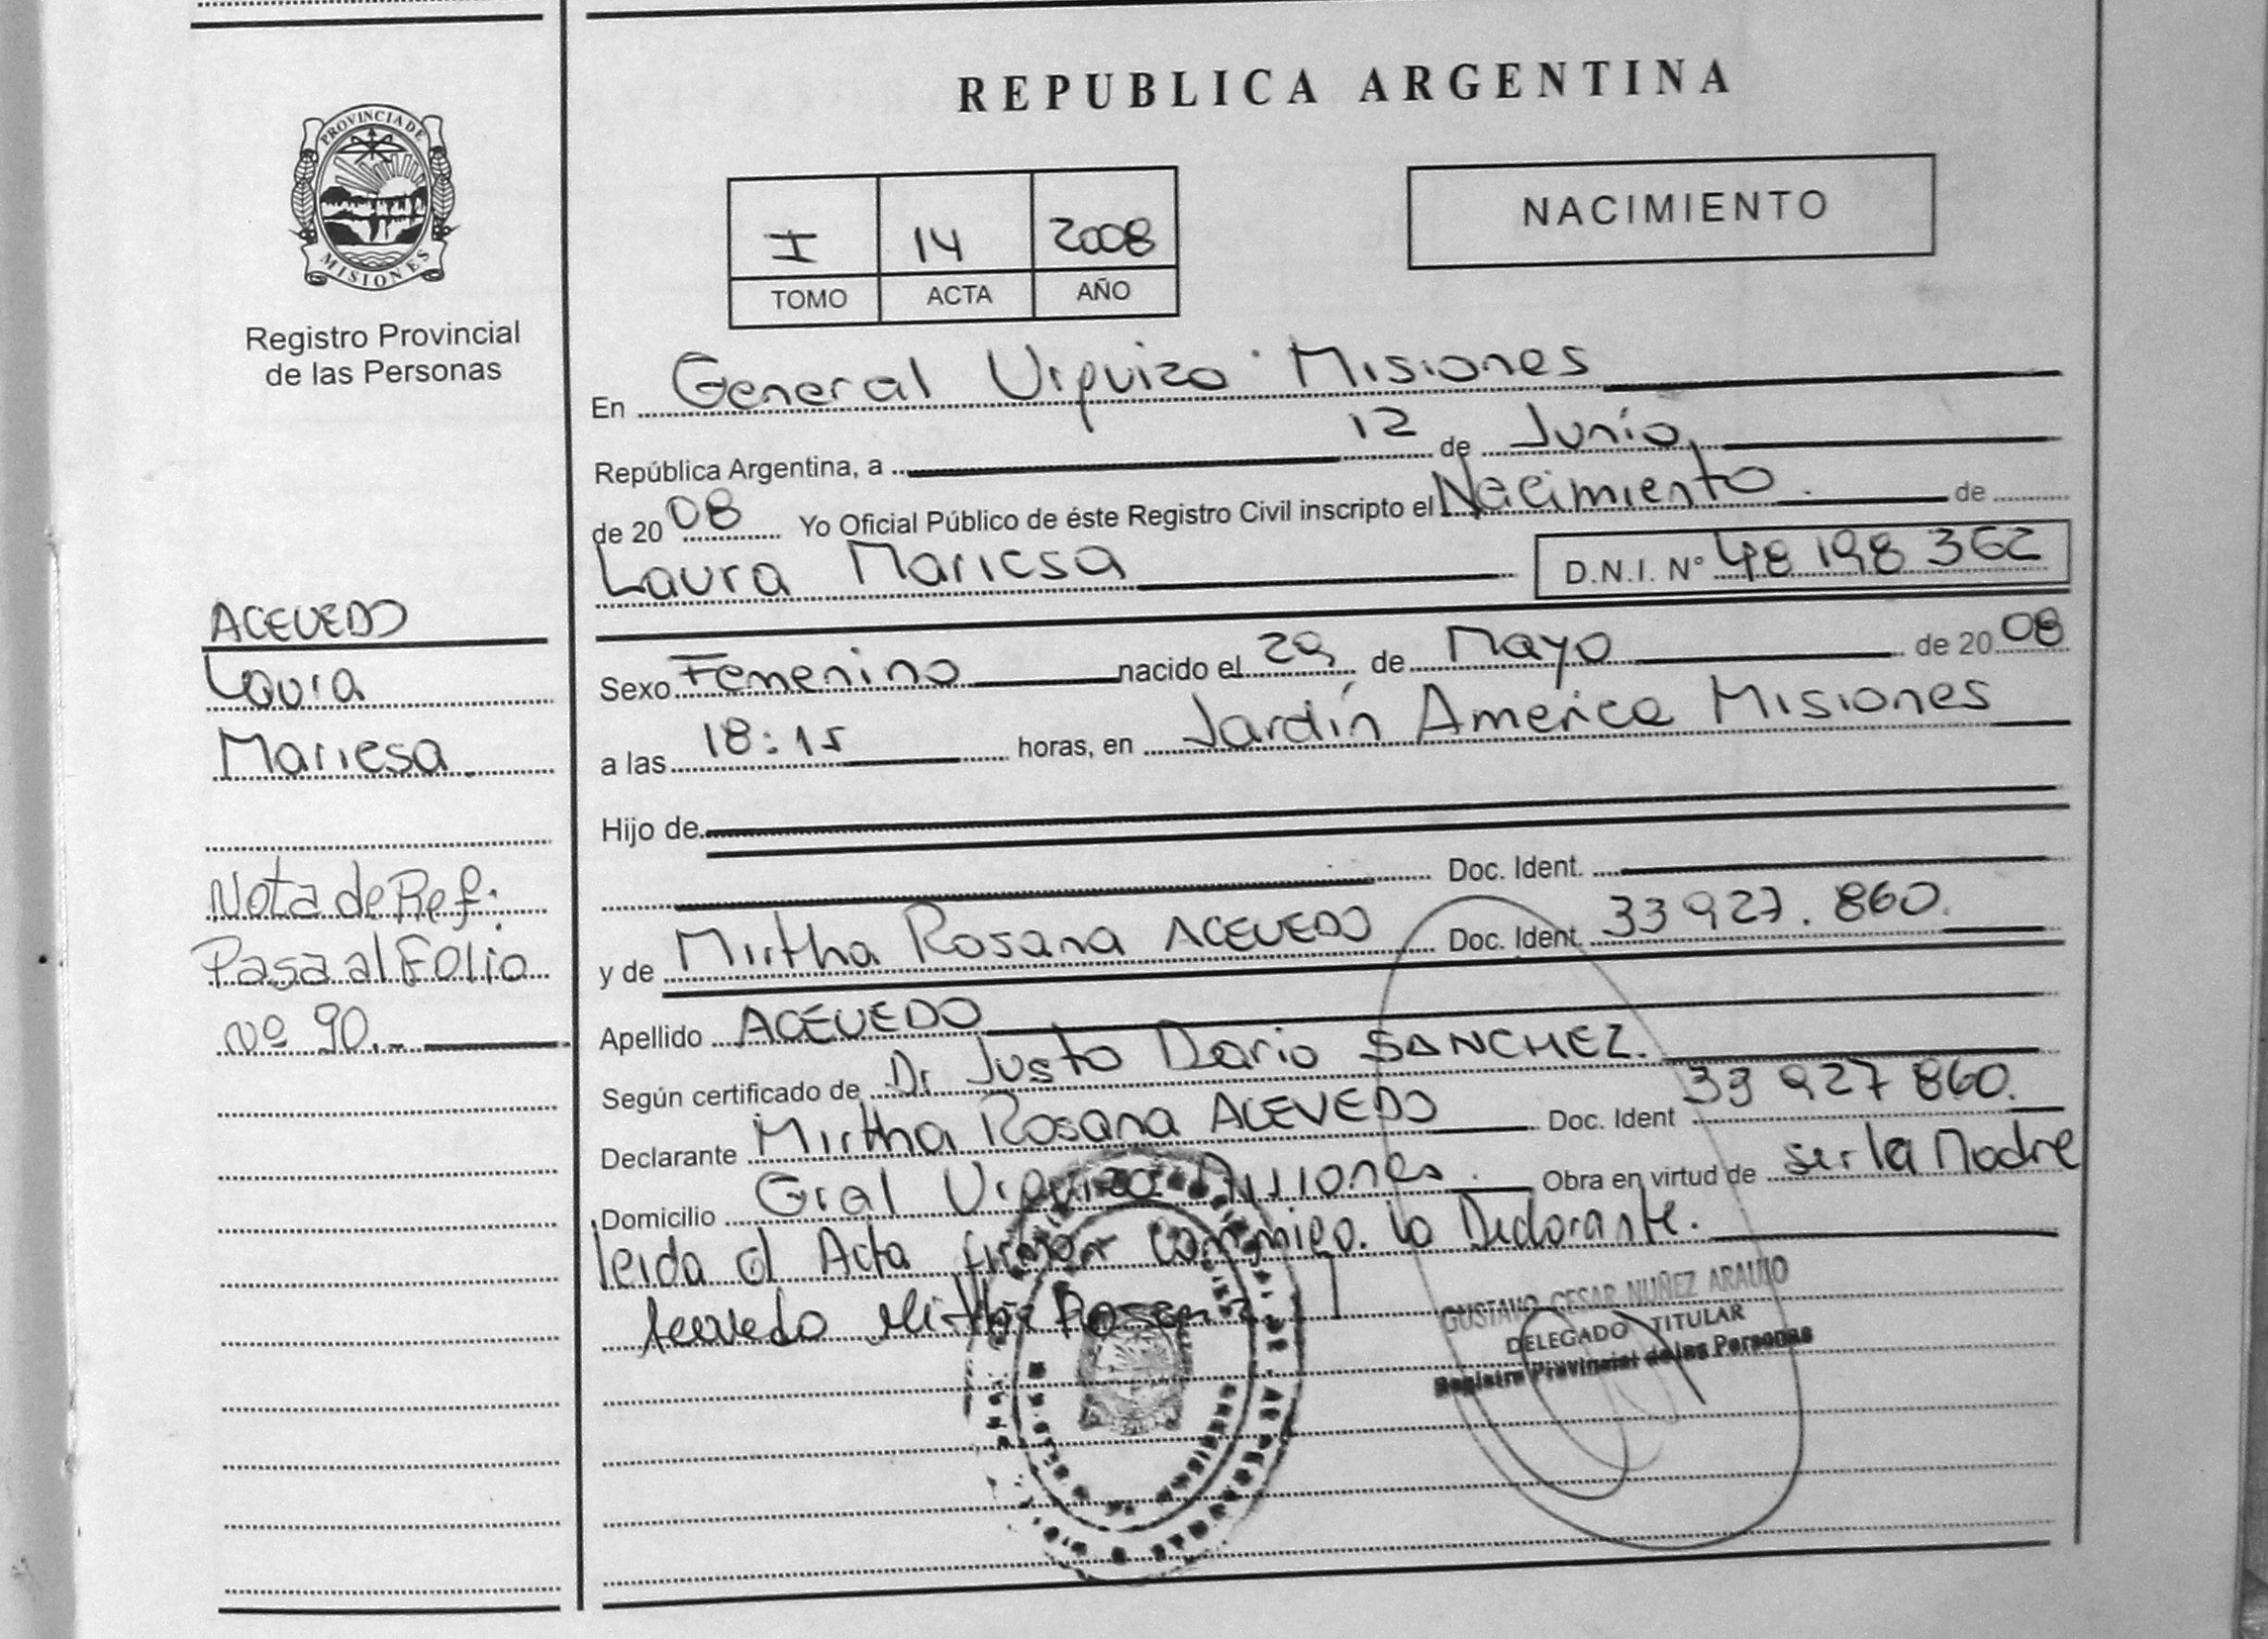 REPUBLICA ARGENTINA
PROVINCIA DE
MISIONES
Registro Provincial
de las Personas
I 14 2008
TOMO ACTA AÑO
NACIMIENTO
En General Urquiza Misiones
República Argentina, a 12 de Junio
de 2008 Yo Oficial Público de éste Registro Civil inscripto el Nacimiento de
Laura Mariesa D.N.I. Nº 48 198 362
ACEVEDO
Laura
Mariesa
Nota de Ref:
Pasa al Folio
nº 90.-
Sexo Femenino nacido el 29 de Mayo de 2008
a las 18:15 horas, en Jardín America Misiones
Hijo de
Doc. Ident.
y de Mirtha Rosana ACEVEDO Doc. Ident. 33 927.860.
Apellido ACEVEDO
Según certificado de Dr Justo Dario SANCHEZ.
Declarante Mirtha Rosana ACEVEDO Doc. Ident 33 927 860.
Domicilio Gral Urquiza Misiones. Obra en virtud de ser la Madre
leida el Acta firman conmigo. la Declarante.
Acevedo Mirtha Rosana
GUSTAVO CESAR NUÑEZ ARAUJO
DELEGADO TITULAR
Registro Provincial de las Personas